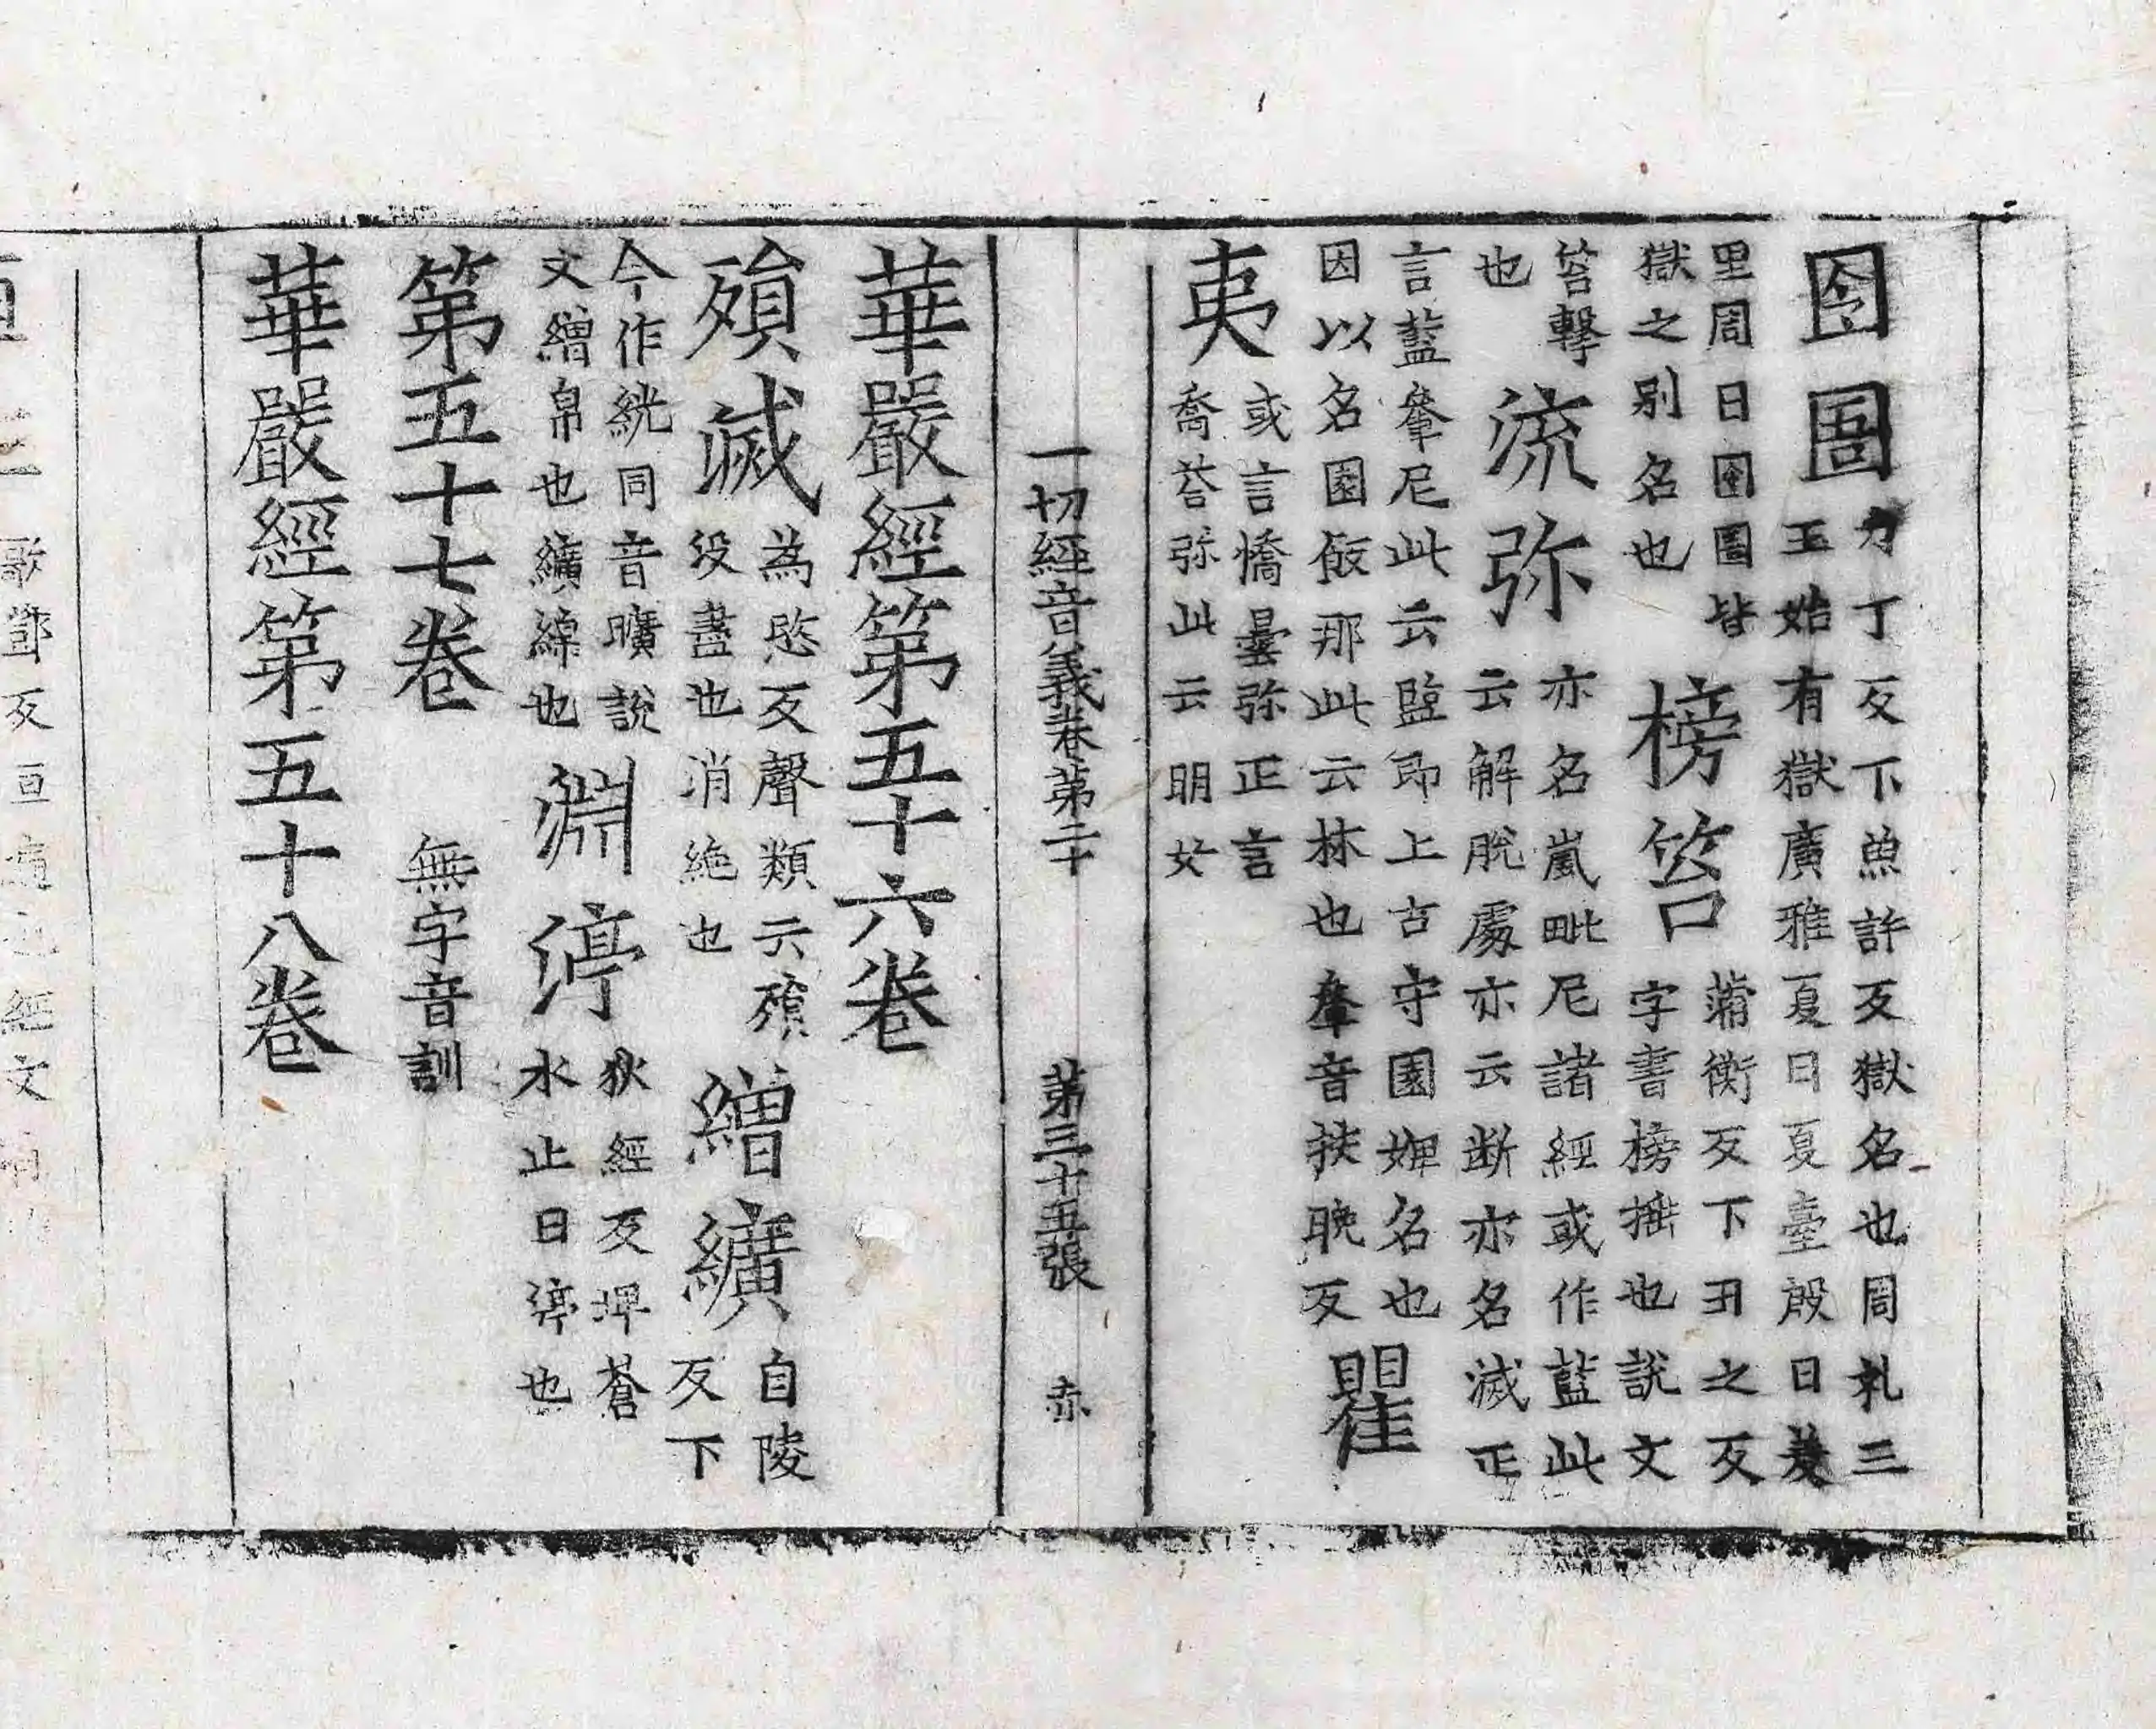 囹圄
力丁反下魚許反獄名也周礼三
王始有獄廣雅夏曰夏臺殷曰羑
里周曰囹圄皆
獄之別名也
榜笞
蒲衡反下丑之反
字書榜捶也說文
笞擊
也
流弥
亦名嵐毗尼諸經或作藍此
云解脫處亦云断亦名滅正
言藍軬尼此云監即上古守園婢名也
因以名園飯那此云林也軬音扶晚反
瞿
夷
或言憍曇弥正言
喬荅弥此云明女
一切經音義卷第二十 第三十五張 赤
華嚴經第五十六卷
殞滅
為愍反聲類云殞
没盡也消絶也
繒纊
自陵
反下
今作絖同音曠說
文繒帛也纊綿也
淵渟
狄經反埤蒼
水止曰渟也
第五十七卷 無字音訓
華嚴經第五十八卷
歌鄧反亘遍也經文